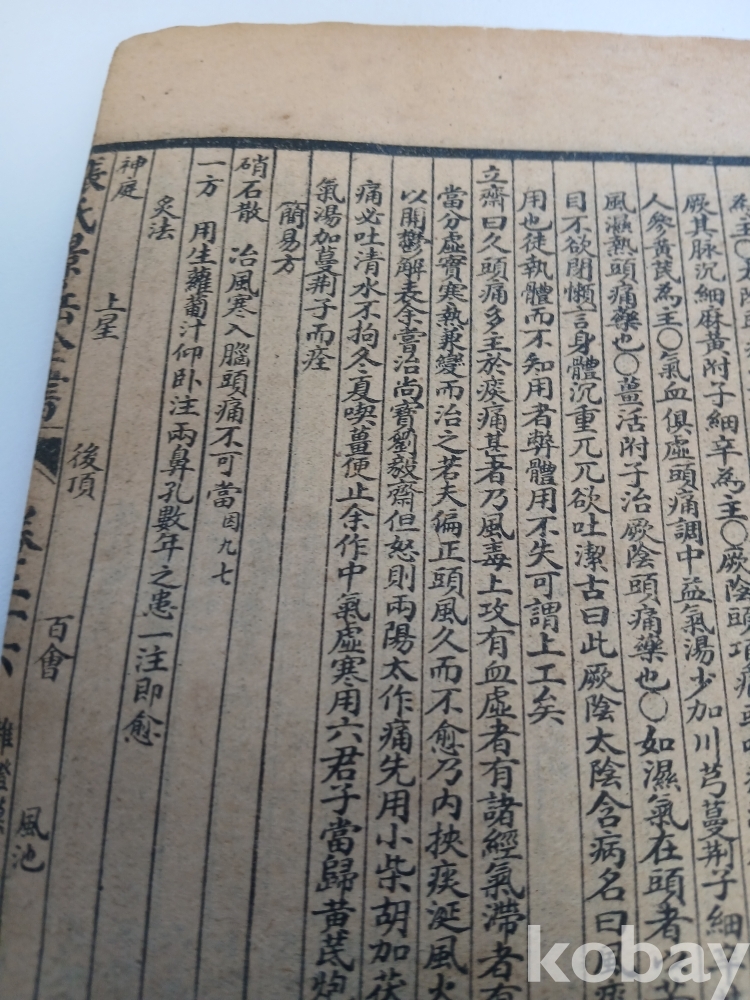 為主〇
厥其脉沉細麻黃附子細辛為主〇厥陰頭項痛
人參黃芪為主〇氣血俱虛頭痛調中益氣湯少加川芎蔓荊子細
風濕熱頭痛藥也〇薑活附子治厥陰頭痛藥也〇如濕氣在頭者
目不欲閉懶言身體沉重兀兀欲吐潔古曰此厥陰太陰含病名曰風
用也徒執體而不知用者弊體用不失可謂上工矣
立齋曰久頭痛多主於痰痛甚者乃風毒上攻有血虛者有諸經氣滯者有
當分虛實寒熱兼變而治之若夫偏正頭風久而不愈乃內挾痰涎風火
以開鬱解表余嘗治尚寶劉毅齋但怒則兩陽太作痛先用小柴胡加茯
痛必吐清水不拘冬夏喫薑便止余作中氣虛寒用六君子當歸黃芪炮
氣湯加蔓荊子而痊
簡易方
硝石散 冶風寒入腦頭痛不可當因九七
一方 用生蘿蔔汁仰卧注兩鼻孔數年之患一注即愈
炙法
神庭 上星 後頂 百會 風池
張氏景岳全書 卷二十六 雜證謨
kobay